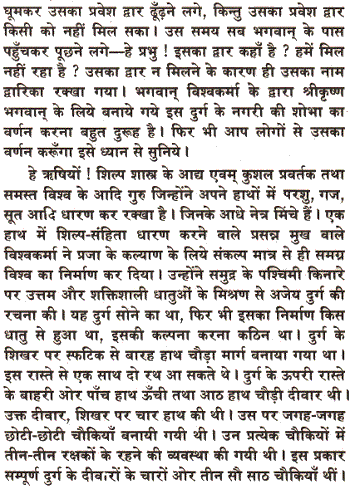 घूमकर उसका प्रवेश द्वार ढूँढ़ने लगे, किन्तु उसका प्रवेश द्वार
किसी को नहीं मिल सका। उस समय सब भगवान् के पास
पहुँचकर पूछने लगे—हे प्रभु ! इसका द्वार कहाँ है ? हमें मिल
नहीं रहा है ? उसका द्वार न मिलने के कारण ही उसका नाम
द्वारिका रक्खा गया। भगवान् विश्वकर्मा के द्वारा श्रीकृष्ण
भगवान् के लिये बनाये गये इस दुर्ग के नगरी की शोभा का
वर्णन करना बहुत दुरूह है। फिर भी आप लोगों से उसका
वर्णन करूँगा इसे ध्यान से सुनिये।
हे ऋषियों ! शिल्प शास्त्र के आद्य एवम् कुशल प्रवर्तक तथा
समस्त विश्व के आदि गुरु जिन्होंने अपने हाथों में परशु, गज,
सूत आदि धारण कर रक्खा है। जिनके आधे नेत्र मिंचे हैं। एक
हाथ में शिल्प-संहिता धारण करने वाले प्रसन्न मुख वाले
विश्वकर्मा ने प्रजा के कल्याण के लिये संकल्प मात्र से ही समग्र
विश्व का निर्माण कर दिया। उन्होंने समुद्र के पश्चिमी किनारे
पर उत्तम और शक्तिशाली धातुओं के मिश्रण से अजेय दुर्ग की
रचना की। यह दुर्ग सोने का था, फिर भी इसका निर्माण किस
धातु से हुआ था, इसकी कल्पना करना कठिन था। दुर्ग के
शिखर पर स्फटिक से बारह हाथ चौड़ा मार्ग बनाया गया था।
इस रास्ते से एक साथ दो रथ आ सकते थे। दुर्ग के ऊपरी रास्ते
के बाहरी ओर पाँच हाथ ऊँची तथा आठ हाथ चौड़ी दीवार थी।
उक्त दीवार, शिखर पर चार हाथ की थी। उस पर जगह-जगह
छोटी-छोटी चौकियाँ बनायी गयी थी। उन प्रत्येक चौकियों में
तीन-तीन रक्षकों के रहने की व्यवस्था की गयी थी। इस प्रकार
सम्पूर्ण दुर्ग के दीवारों के चारों ओर तीन सौ साठ चौकियाँ थीं।